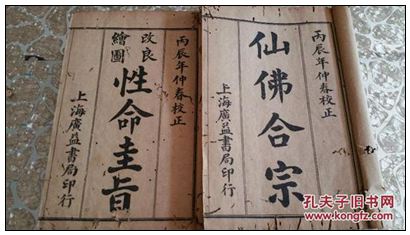 丙辰年仲春校正
仙佛合宗
上海廣益書局印行
丙辰年仲春校正
改良
繪圖
性命圭旨
上海廣益書局印行
孔夫子旧书网
www.kongfz.com